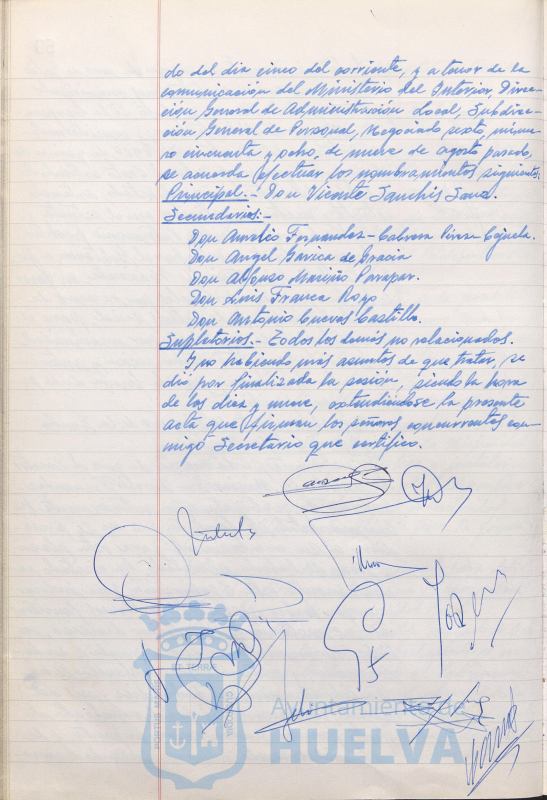 do del dia cinco del corriente, y a tenor de la
comunicación del Ministerio del Interior, Direc-
ción General de Administración Local, Subdirec-
ción General de Personal, Negociado sexto, núme-
ro cincuenta y ocho, de nueve de agosto pasado,
se acuerda efectuar los nombramientos siguientes:
Principal.- Don Vicente Sanchis Sanz.
Secundarios:-
Don Aurelio Fernandez-Cabrera Perez Cejuela.
Don Angel Garica de Gracia
Don Alfonso Mariño
Don Luis Franca Royo
Don Antonio Cuevas Castillo.
Supletorios.- Todos los demás no relacionados.
Y no habiendo más asuntos de que tratar, se
dió por finalizada la sesión, siendo la hora
de las diez y nueve, extendiéndose la presente
acta que firman los señores concurrentes con-
migo Secretario que certifico.
Ayuntamiento de
HUELVA